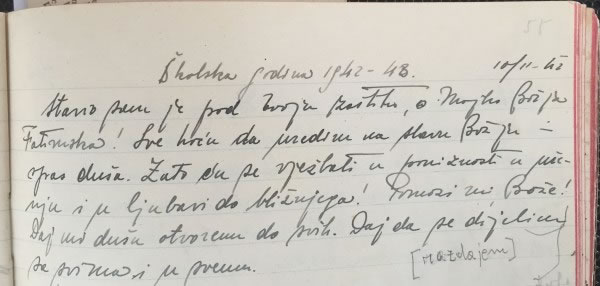 58
Školska godina 1942-43. 10/II-42
Stavio sam je pod Tvoju zaštitu, o Majko Božja
Fatimska! Sve hoću da uredim na slavu Božju i
spas duša. Zato ću se vježbati u poniznosti u
nju i u ljubavi do bližnjega! Pomozi mi Bože!
Daj mi dušu otvorenu do svih. Daj da se dijelim
sa svima i u svemu. [razdajem]